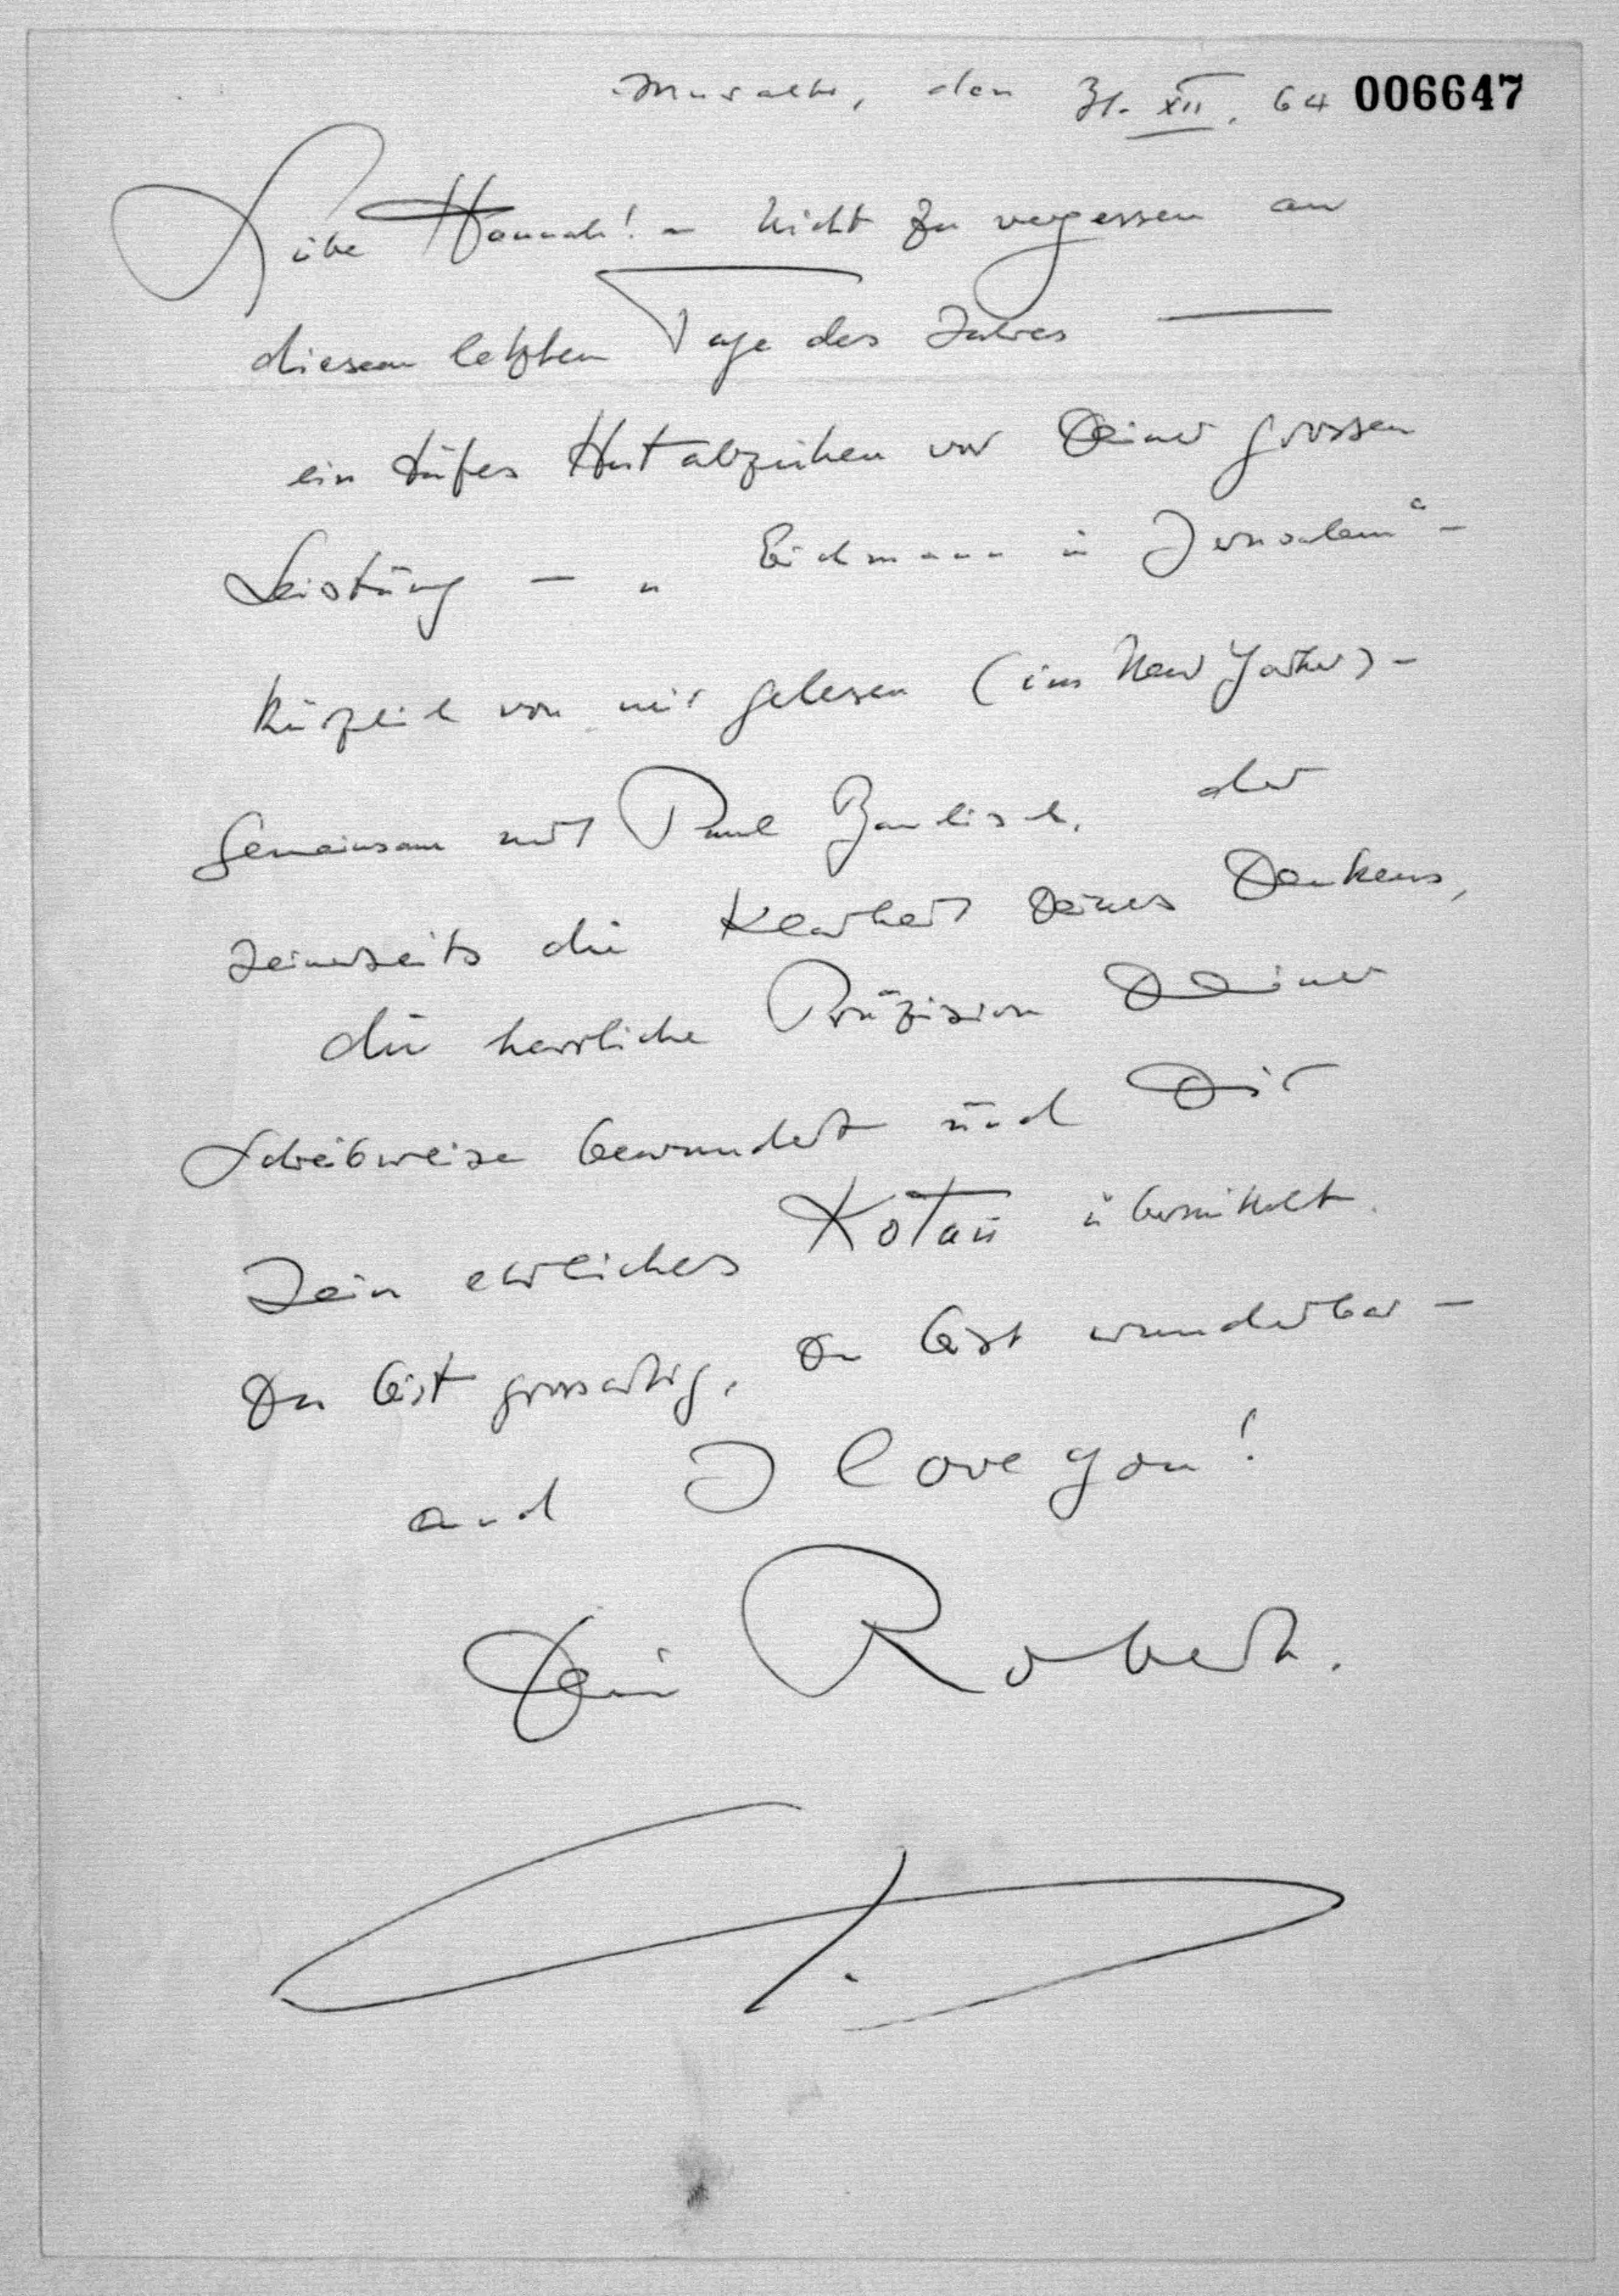 Muralto, den 31. XII. 64 006647
Liebe Hannah! – Nicht zu vergessen an
diesem letzten Tage des Jahres —
ein tiefes Hutabziehen vor Deiner grossen
Leistung – „Eichmann in Jerusalem“ –
kürzlich von mir gelesen (im New Yorker) –
gemeinsam mit Paul, der
seinerseits die Klarheit Deines Denkens,
die herrliche Präzision Deiner
Schreibweise bewundert und Dir
sein ehrliches Kotau übermittelt.
Du bist grossartig, Du bist wunderbar –
and I love you!
Dein Robert.